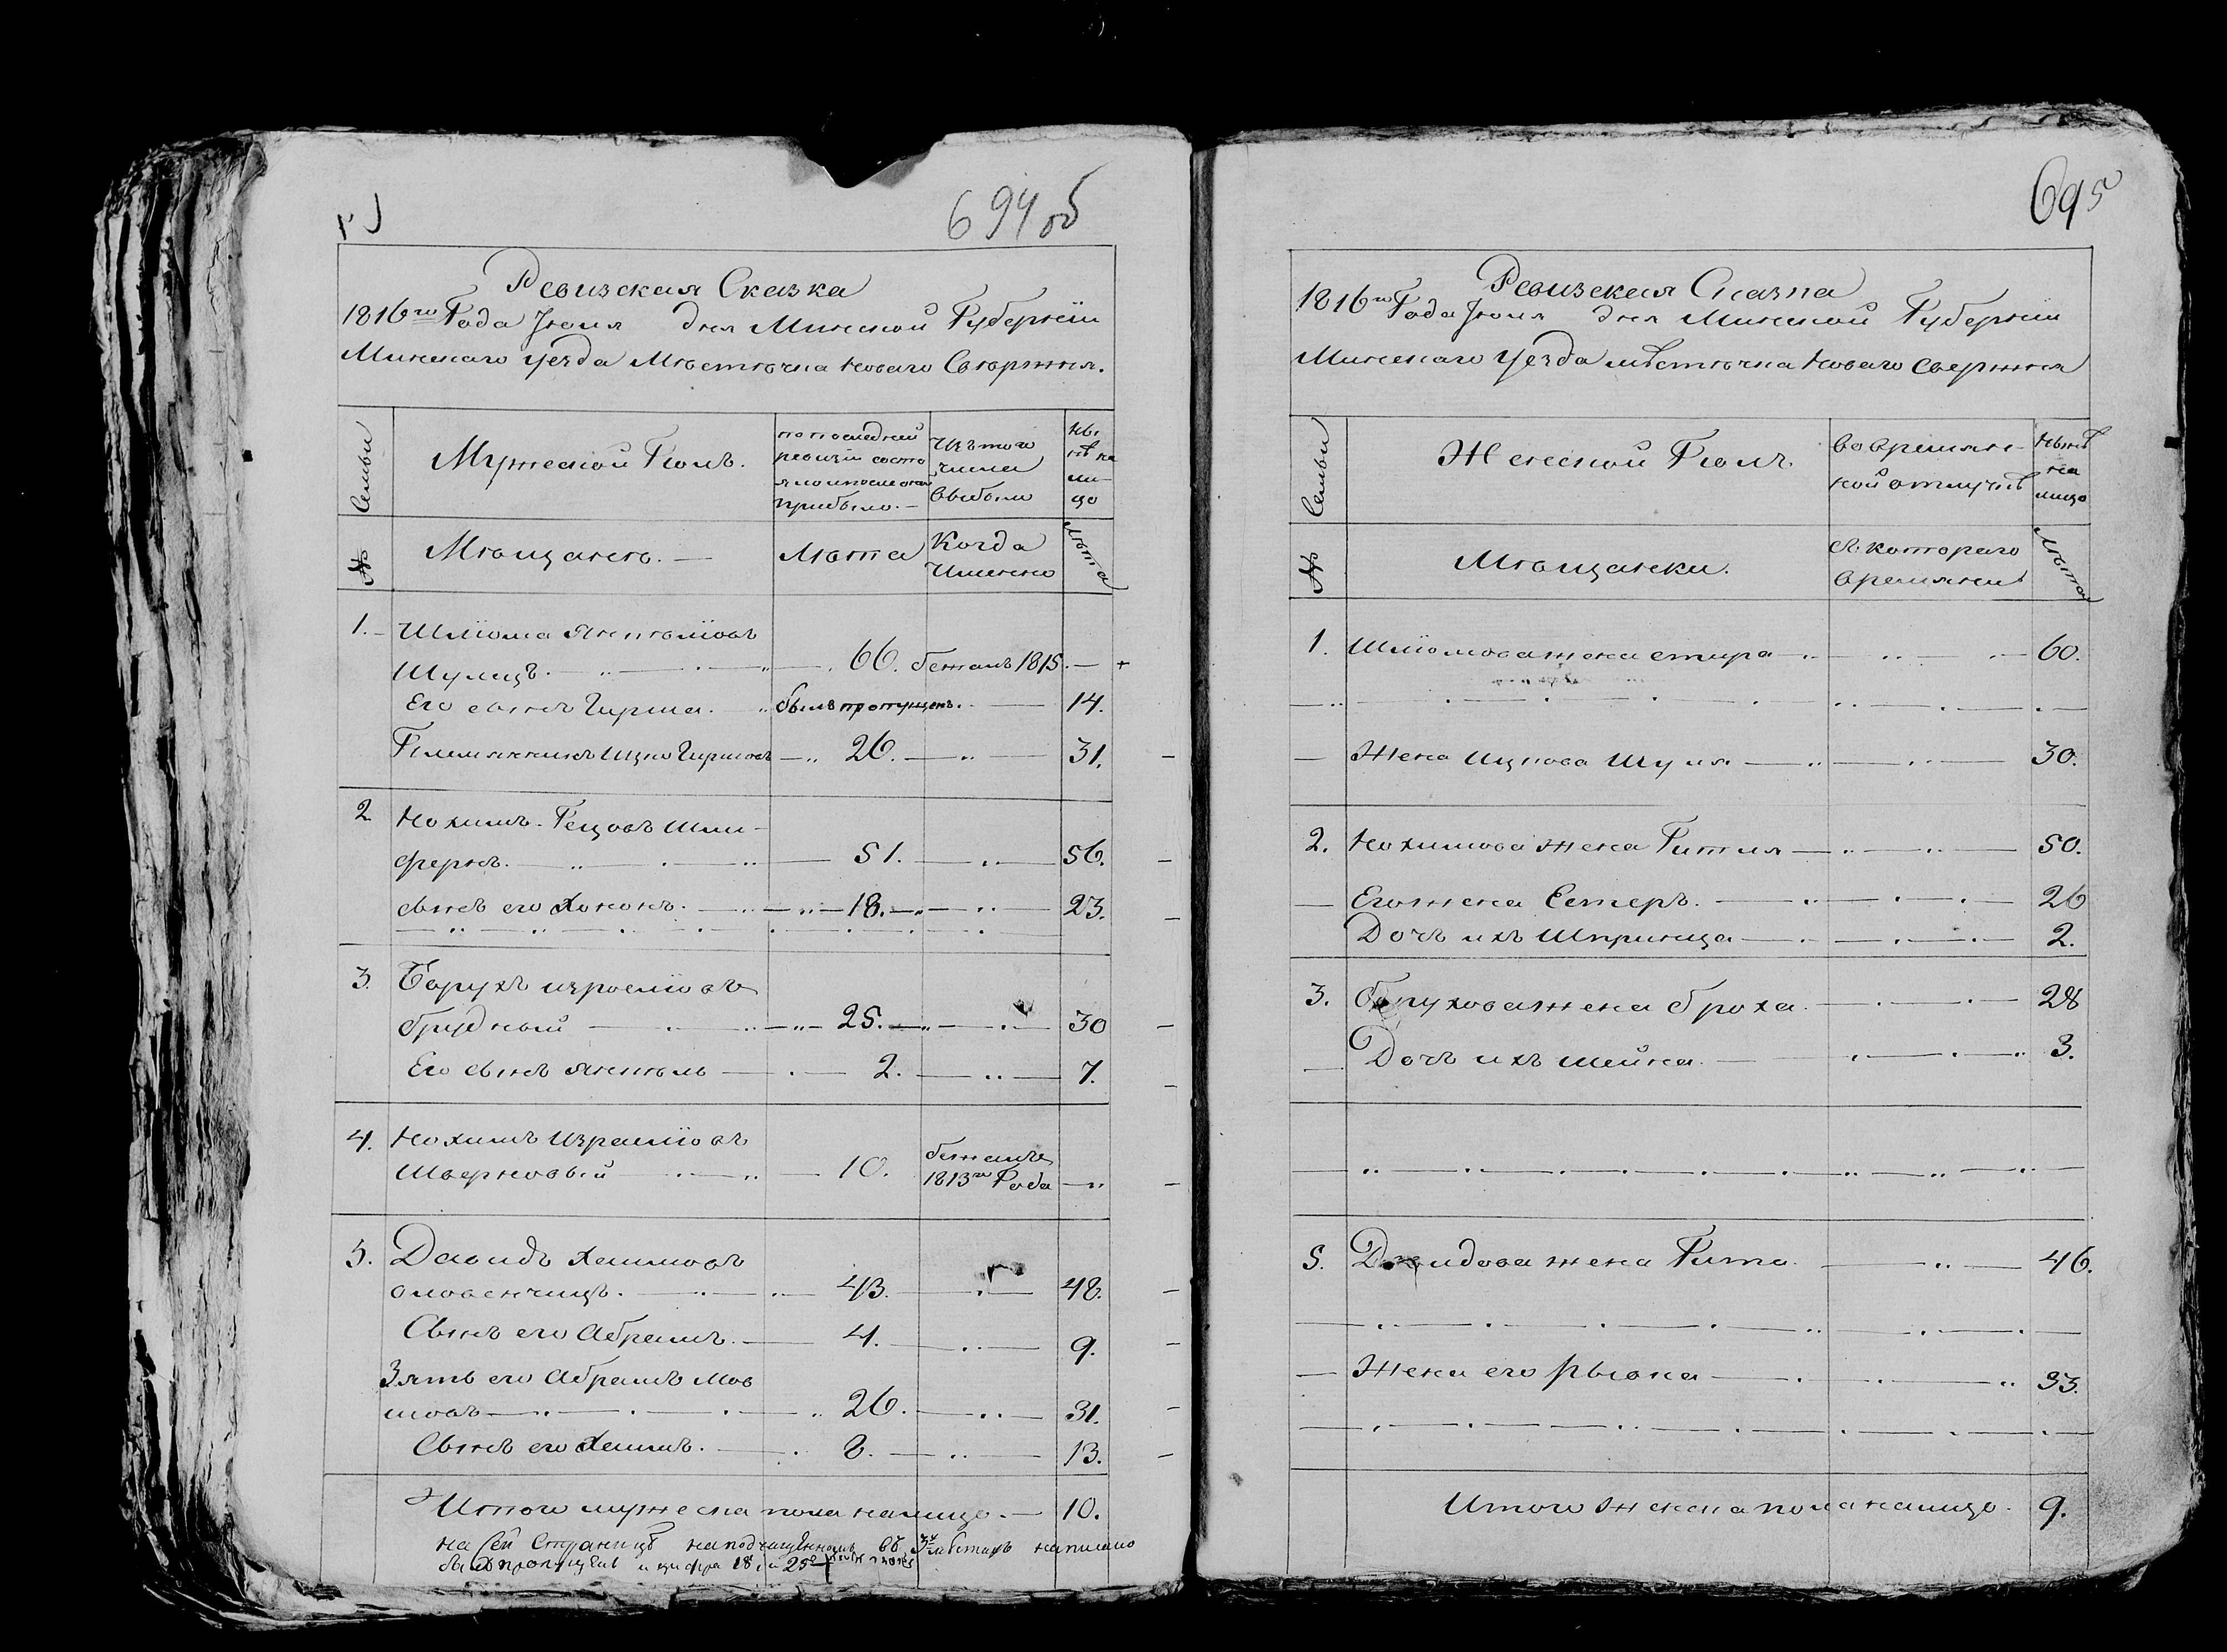 694 об
Ревизская Сказка
1816го Года Июля дня Минской Губернiи
Минскаго уезда Мѣстечка Новаго Свержня.
Семьи
Мужеской Полъ.
по последней
ревизiи состо
яло и после онои
прибыло. —
Изъ того
числа
выбыло
Ны-
нѣ на
ли-
цо
№
Мѣщанѣ. —
Лѣта
Когда
Именно
Лѣта
1. Шлiома Янкелiовъ
Шулицъ. 66. бежалъ 1815. — +
Его сынъ Гирша. былъ пропущенъ. 14.
Племянникъ Ицко Гиршовъ 26. 31.
2 Нохимъ Гецовъ Шли-
ферня. 51. 56.
сынъ его Хононъ. 18. 23.
3. Борухъ израелiовъ
брудный 25. 30
Его сынъ Янкель 2. 7.
4. Нохимъ Израилiовъ
Шверновый 10. бежалъ
1813го Года
5. Давидъ Хаимовъ
словенчицъ. 43. 48.
Сынъ его Абрамъ. 4. 9.
Зять его Абрамъ Мов
шовъ 26. 31.
Сынъ его Хаимъ. 8. 13.
Итого мужеска пола налицо. — 10.
на сей Страницѣ на подчищенномъ въ 3хъ мѣстахъ написано
былъ пропущенъ и цифра 18, и 25
695
Ревизская Сказка
1816го Года Июля дня Минской Губернiи
Минскаго Уезда мѣстечка Новаго Свержня
Семьи
Женской Полъ.
Во времян-
ной отлучкѣ
Нынѣ
на
лицо
№
Мѣщанки.
Съ котораго
времяни
Лѣта
1. Шлiомова жена стира 60.
Жена Ицкова Шуля 30.
2. Нохимова жена Гитля 50.
Его жена Естеръ. 26
Дочь ихъ Шпринца 2.
3. Борухова жена броха. 28
Дочь ихъ шейна. 3.
5. Давидова жена Гита. 46.
Жена его Рывка 33.
Итого женска пола налицо. 9.